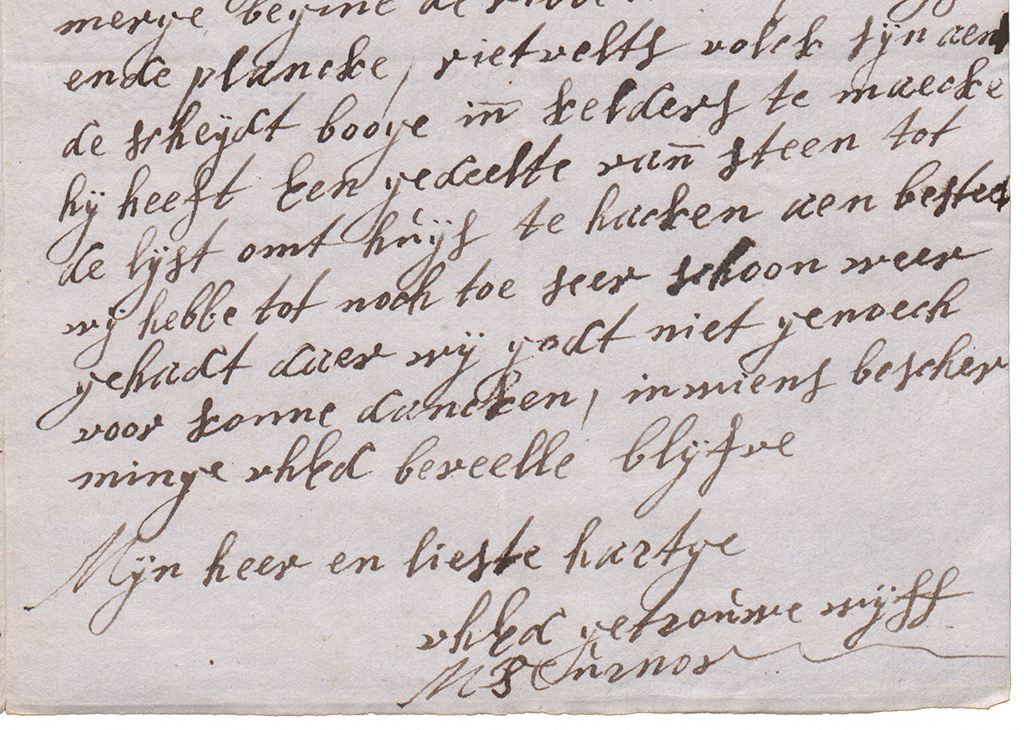 merge begine de
ende plancke, rietvelts volck sijn aen
de scheydt booge in kelders te maecke
hÿ heeft Een gedeelte vann steen tot
de lÿst omt húÿs te hacken aen besteet
wÿ hebbe tot noch toe seer schoon weer
gehadt daer wÿ godt niet genoech
voor konne dancken, in wiens bescher
minge uhEd beveelle blÿfve
Mÿn heer en liefste hartge
uhEd getrouwe wÿff
M